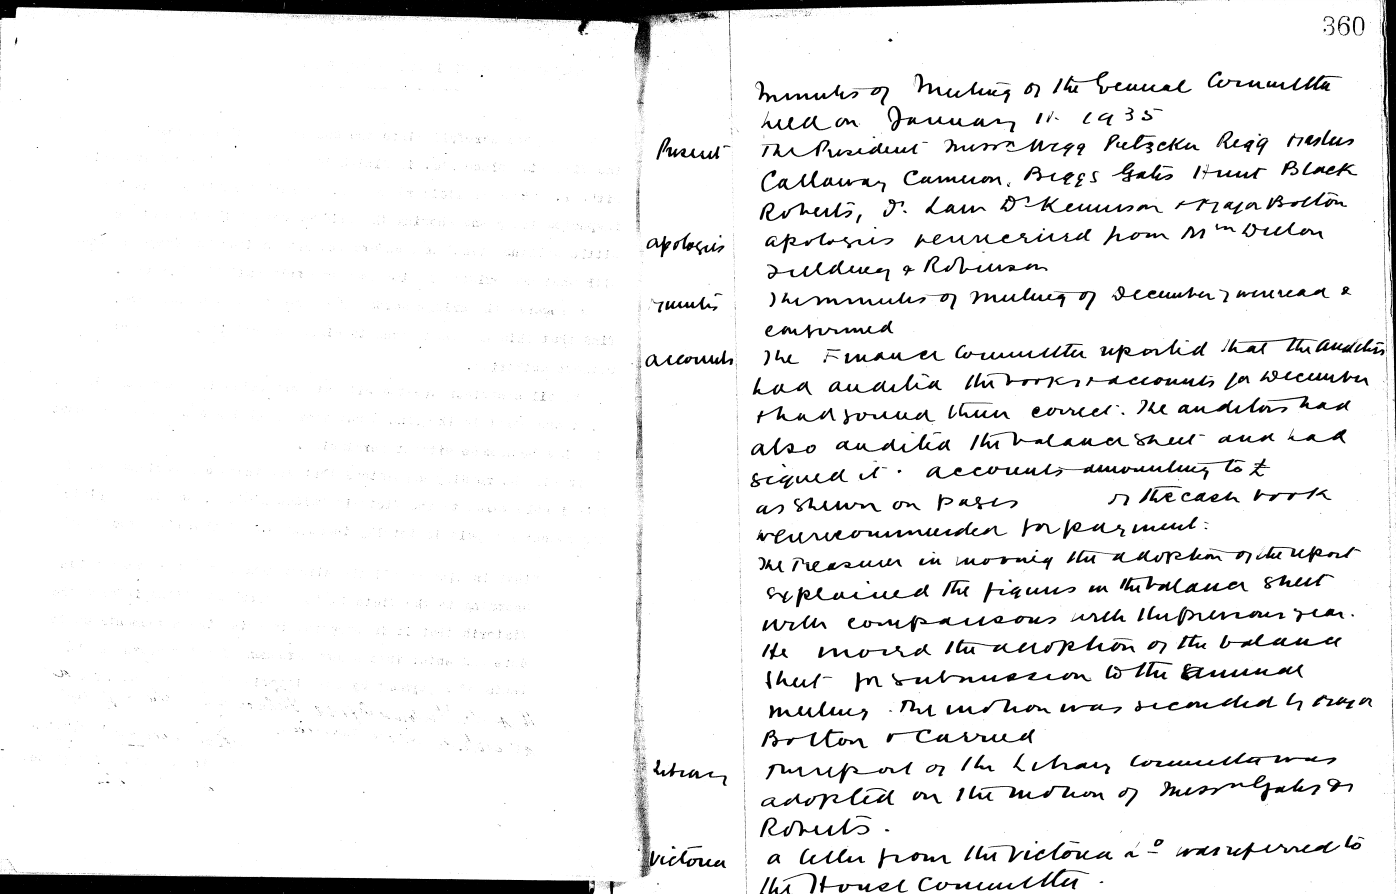 360
Minutes of Meeting of the General Committee
held on January 11. 1935
Present The President Messrs Wigg Pietzcker Rigg
Callaway Cameron, Biggs Gates Hunt Black
Roberts, Dr. Law Dr Kennison & Major Bolton
apologies apologies were received from Mssrs
& Robinson
minutes The minutes of meeting of December 7 were read &
confirmed
accounts The Finance Committee reported that the auditors
had audited the books & accounts for December
& had found them correct. The auditors had
also audited the balance sheet and had
signed it. accounts amounting to £
as shewn on pages of the cash book
were recommended for payment.
The Treasurer in moving the adoption of the report
explained the figures in the balance sheet
with comparisons with the previous year.
He moved the adoption of the balance
sheet for submission to the annual
meeting. The motion was seconded by Major
Bolton & Carried
Library The report of the Library Committee was
adopted on the motion of Messrs Gates &
Roberts.
Victoria a letter from the Victoria was referred to
the House Committee.